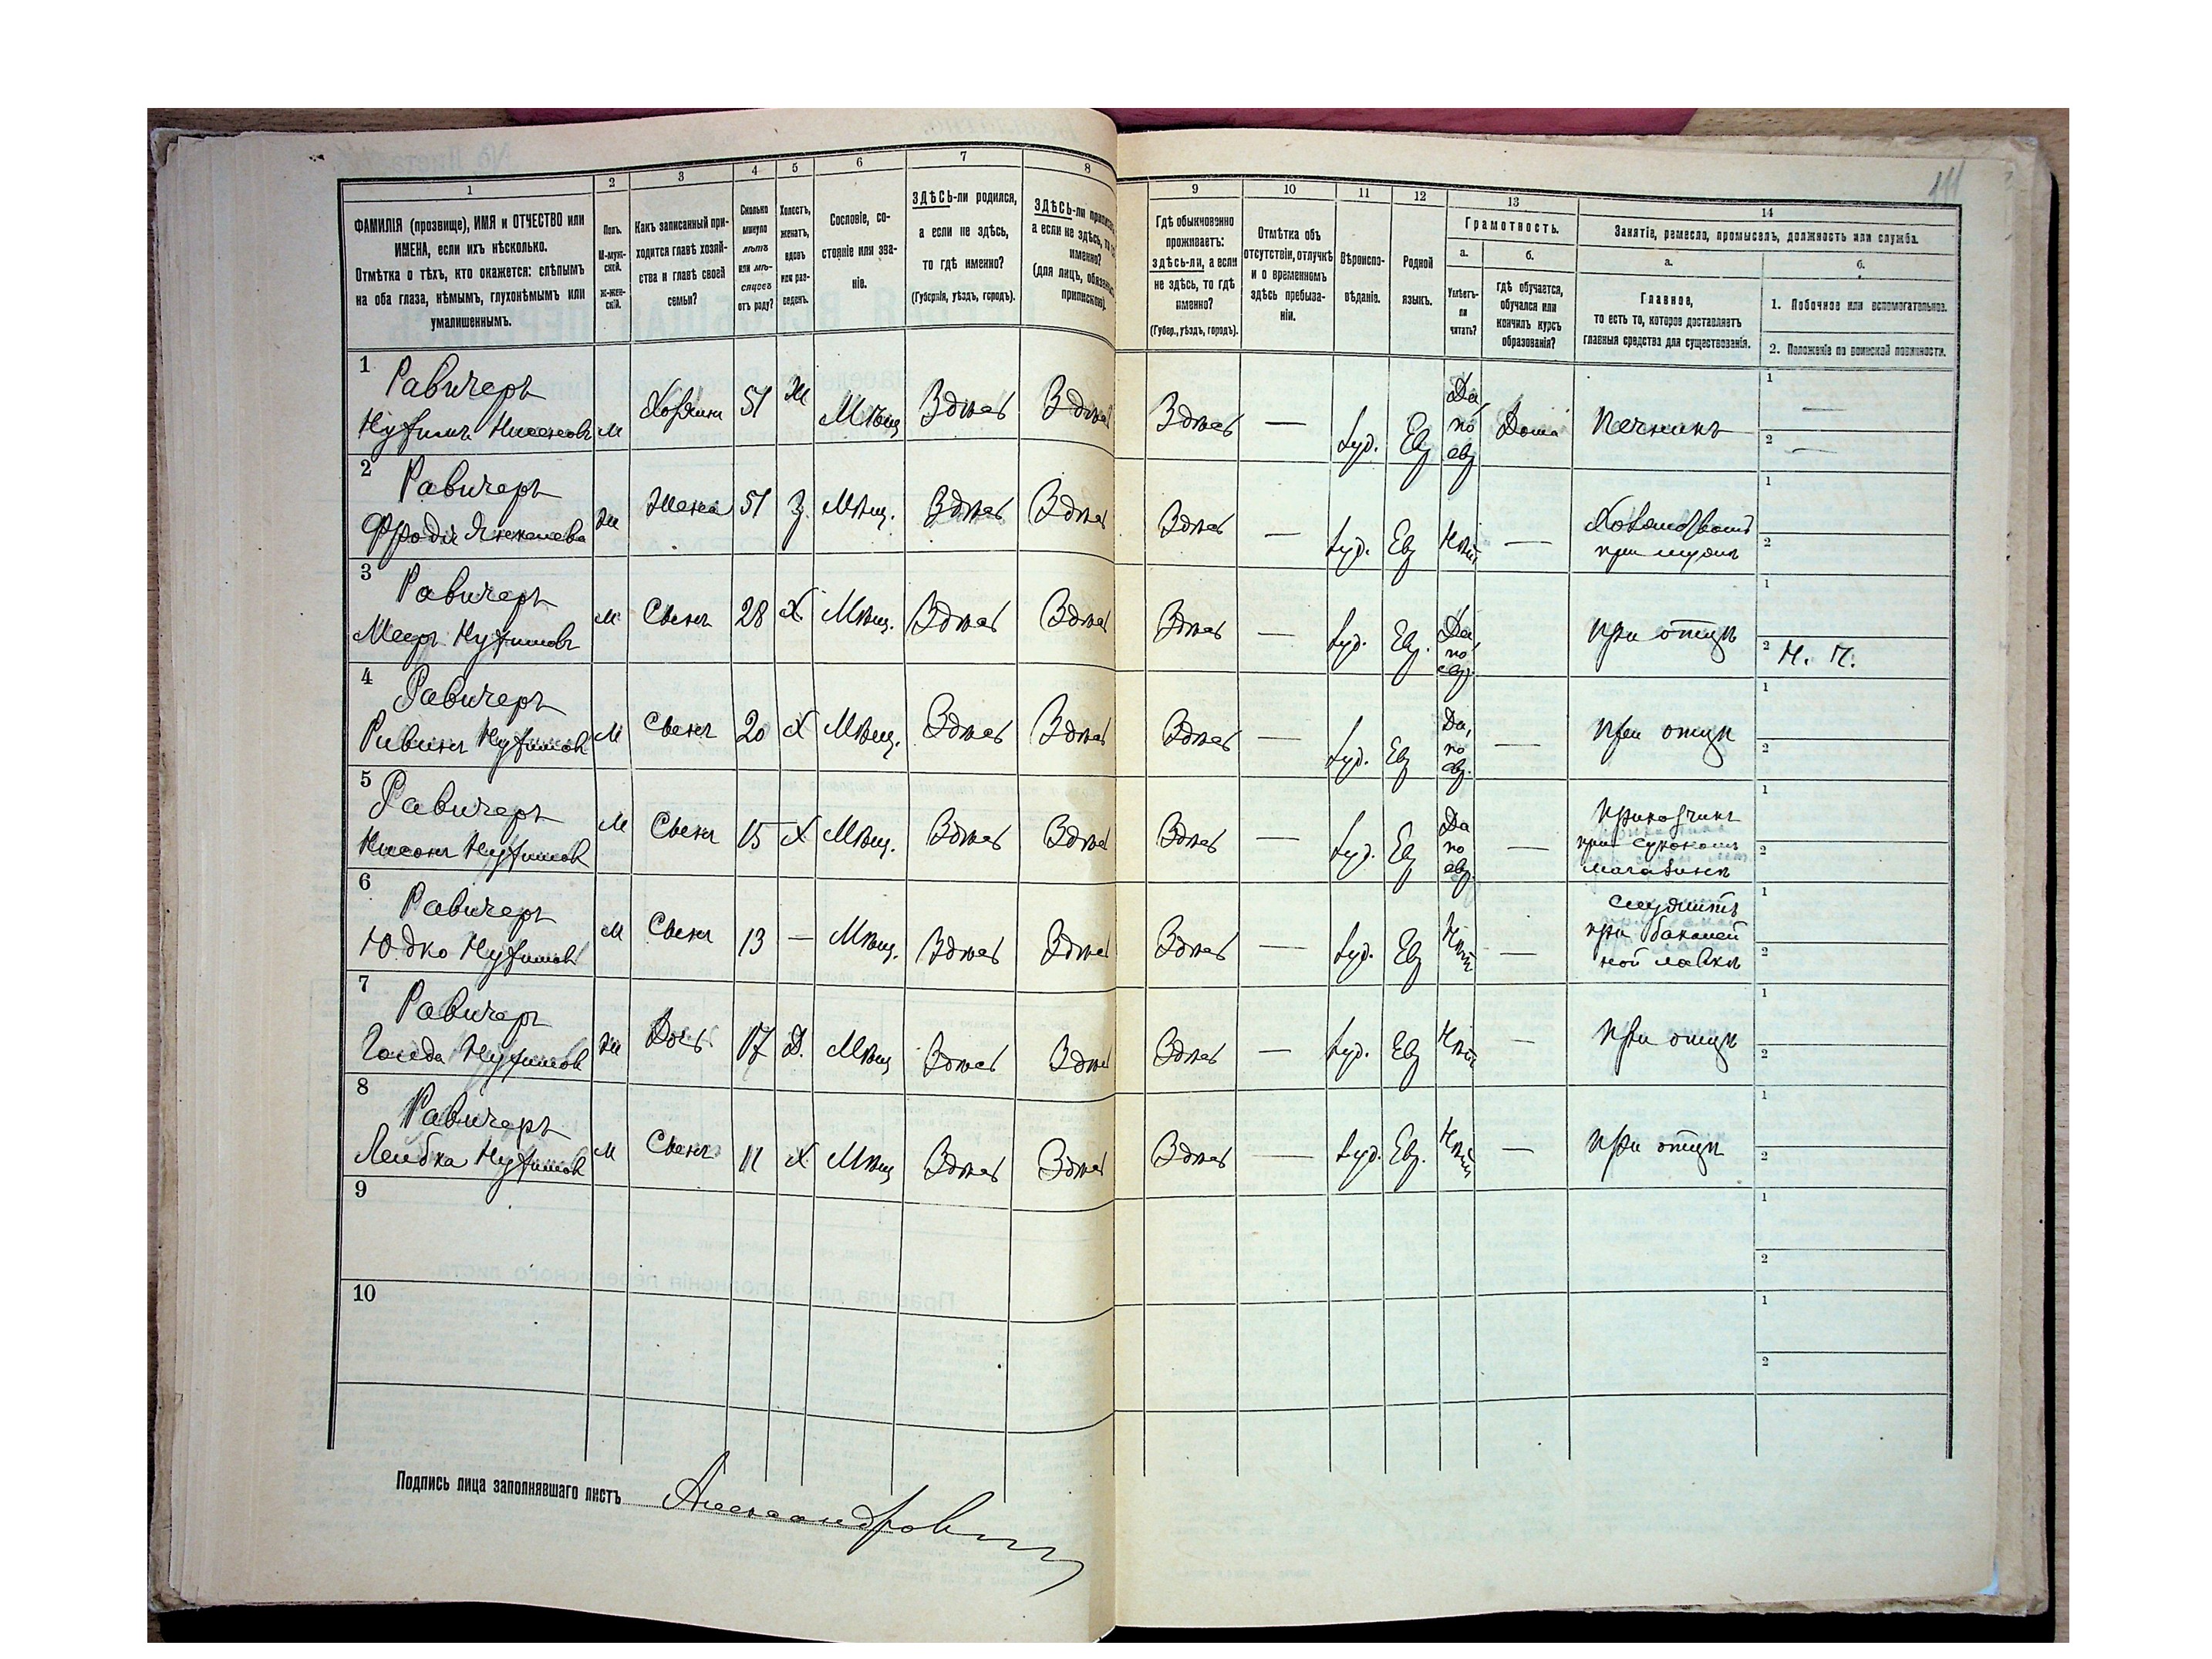 111
1
ФАМИЛІЯ (прозвище), ИМЯ и ОТЧЕСТВО или
ИМЕНА, если ихъ нѣсколько.
Отмѣтка о тѣхъ, кто окажется: слѣпымъ
на оба глаза, нѣмымъ, глухонѣмымъ или
умалишеннымъ.
2
Полъ.
М-муж-
ской.
Ж-жен-
скій.
3
Какъ записанный при-
ходится главѣ хозяй-
ства и главѣ своей
семьи?
4
Сколько
минуло
лѣтъ
или мѣ-
сяцевъ
отъ роду?
5
Холостъ,
женатъ,
вдовъ
или раз-
веденъ.
6
Сословіе, со-
стояніе или зва-
ніе.
7
ЗДѢСЬ-ли родился,
а если не здѣсь,
то гдѣ именно?
(Губернія, уѣздъ, городъ).
8
ЗДѢСЬ-ли
а если не здѣсь,
именно?
(для лицъ,
9
Гдѣ обыкновенно
проживаетъ:
здѣсь-ли, а если
не здѣсь, то гдѣ
именно?
(Губер., уѣздъ, городъ).
10
Отмѣтка объ
отсутствіи, отлучкѣ
и о временномъ
здѣсь пребыва-
ніи.
11
Вѣроиспо-
вѣданіе.
12
Родной
языкъ.
13
Грамотность.
а.
Умѣетъ-
ли
читать?
б.
гдѣ обучается,
обучался или
кончилъ курсъ
образованія?
14
Занятіе, ремесло, промыселъ, должность или служба.
а.
Главное,
то есть то, которое доставляетъ
главныя средства для существованія.
б.
1. Побочное или вспомогательное.
2. Положеніе по воинской повинности.
1
Равичеръ
М
Хозяинъ
51
Ж
Мѣщ
Здѣсь
Здѣсь
Здѣсь
—
Іуд.
Евр
Да,
по
евр
Дома
Печникъ
1
—
2
—
2
Равичеръ
Ж
Жена
51
З.
Мѣщ.
Здѣсь
Здѣсь
Здѣсь
—
Іуд.
Евр
Нѣтъ
—
при мужѣ
1
2
3
Равичеръ
М
Сынъ
28
Х
Мѣщ.
Здѣсь
Здѣсь
Здѣсь
—
Іуд.
Евр.
Да,
по
евр.
При отцѣ
1
2
Н. Ч.
4
Равичеръ
М
Сынъ
20
Х
Мѣщ.
Здѣсь
Здѣсь
Здѣсь
—
Іуд.
Евр
Да,
по
евр.
—
При отцѣ
1
2
5
Равичеръ
М
Сынъ
15
Х
Мѣщ.
Здѣсь
Здѣсь
Здѣсь
—
Іуд.
Евр
Да
по
евр.
—
Приказчикъ
при
магазинѣ
1
2
6
Равичеръ
Юдко Нухимов
М
Сынъ
13
—
Мѣщ.
Здѣсь
Здѣсь
Здѣсь
—
Іуд.
Евр
Нѣтъ
—
служитъ
при бакалей
ной лавкѣ
1
2
7
Равичеръ
Голда Нухимов
Ж
Дочь
17
Д.
Мѣщ
Здѣсь
Здѣсь
Здѣсь
—
Іуд.
Евр
Нѣтъ
—
При отцѣ
1
2
8
Равичеръ
Лейбка Нухимов
М
Сынъ
11
Х
Мѣщ
Здѣсь
Здѣсь
Здѣсь
—
Іуд.
Евр.
Нѣтъ
—
При отцѣ
1
2
9
1
2
10
1
2
Подпись лица заполнявшаго листъ